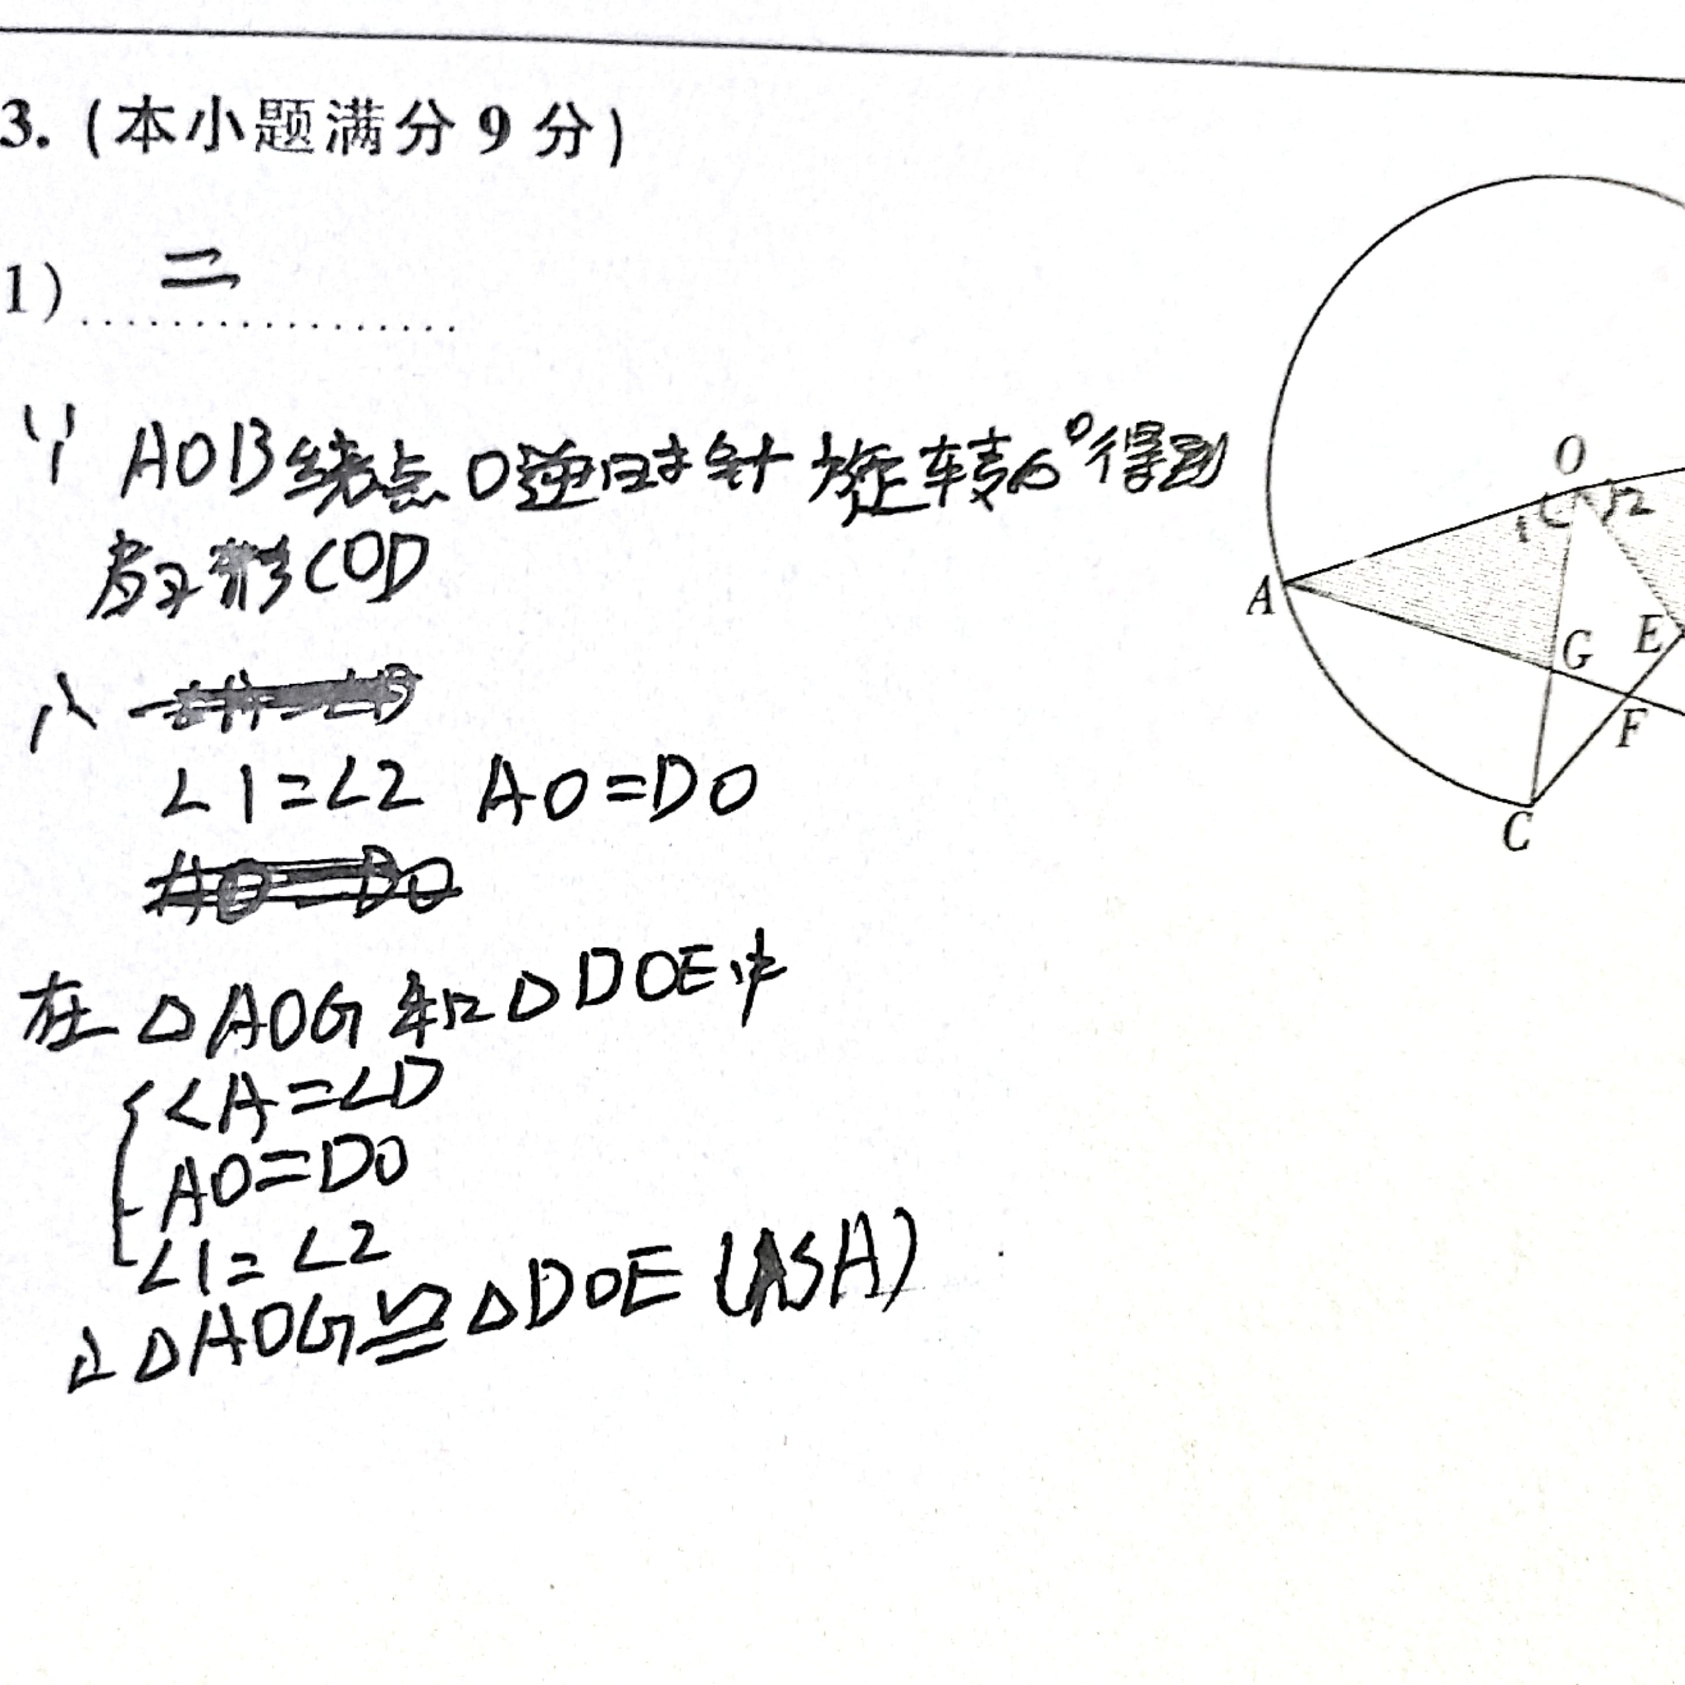 3. (本小题满分 9 分)
1) 二
(1) AOB绕点O逆时针旋转n°得到
扇形COD
∴
∠1=∠2 AO=DO
在△AOG和△DOE中
∠A=∠D
AO=DO
∠1=∠2
∴△AOG≌△DOE (ASA)
O
1 2
A
G E
F
C